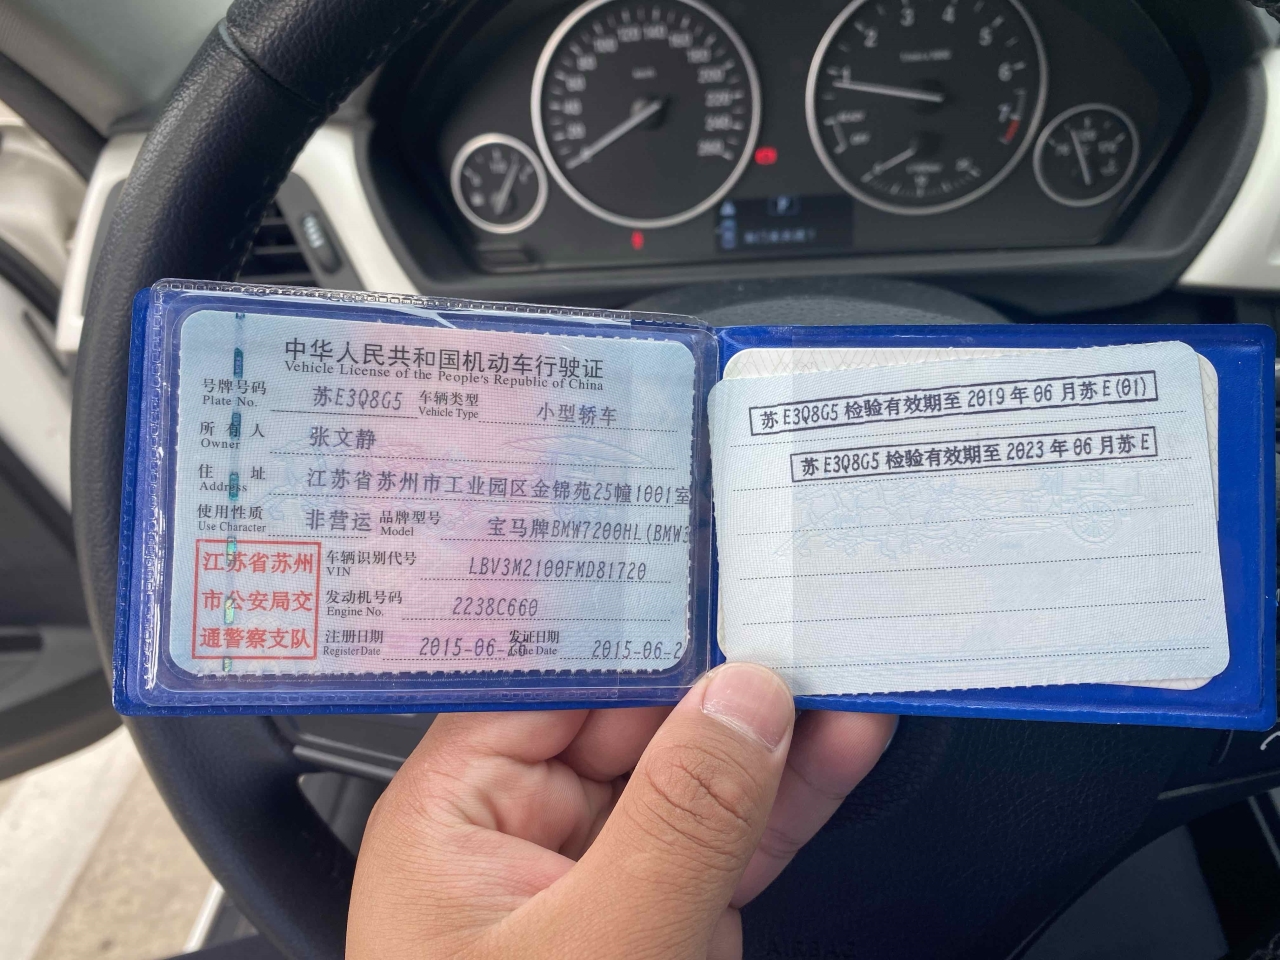 中华人民共和国机动车行驶证
Vehicle License of the People's Republic of China
号牌号码 苏E3Q8G5 车辆类型 小型轿车
Plate No. Vehicle Type
所有人 张文静
Owner
住址 江苏省苏州市工业园区金锦苑25幢1001室
Address
使用性质 非营运 品牌型号 宝马牌BMW7200HL(BMW3
Use Character Model
江苏省苏州
市公安局交
通警察支队
车辆识别代号 LBV3M2100FMD81720
VIN
发动机号码 2238C660
Engine No.
注册日期 2015-06- 发证日期 2015-06-2
Register Date Issue Date
苏E3Q8G5检验有效期至2019年06月苏E(01)
苏E3Q8G5检验有效期至2023年06月苏E
1
2
3
4
5
6
7
20
40
60
80
100
120
140
160
180
200
220
240
260
km/h
P